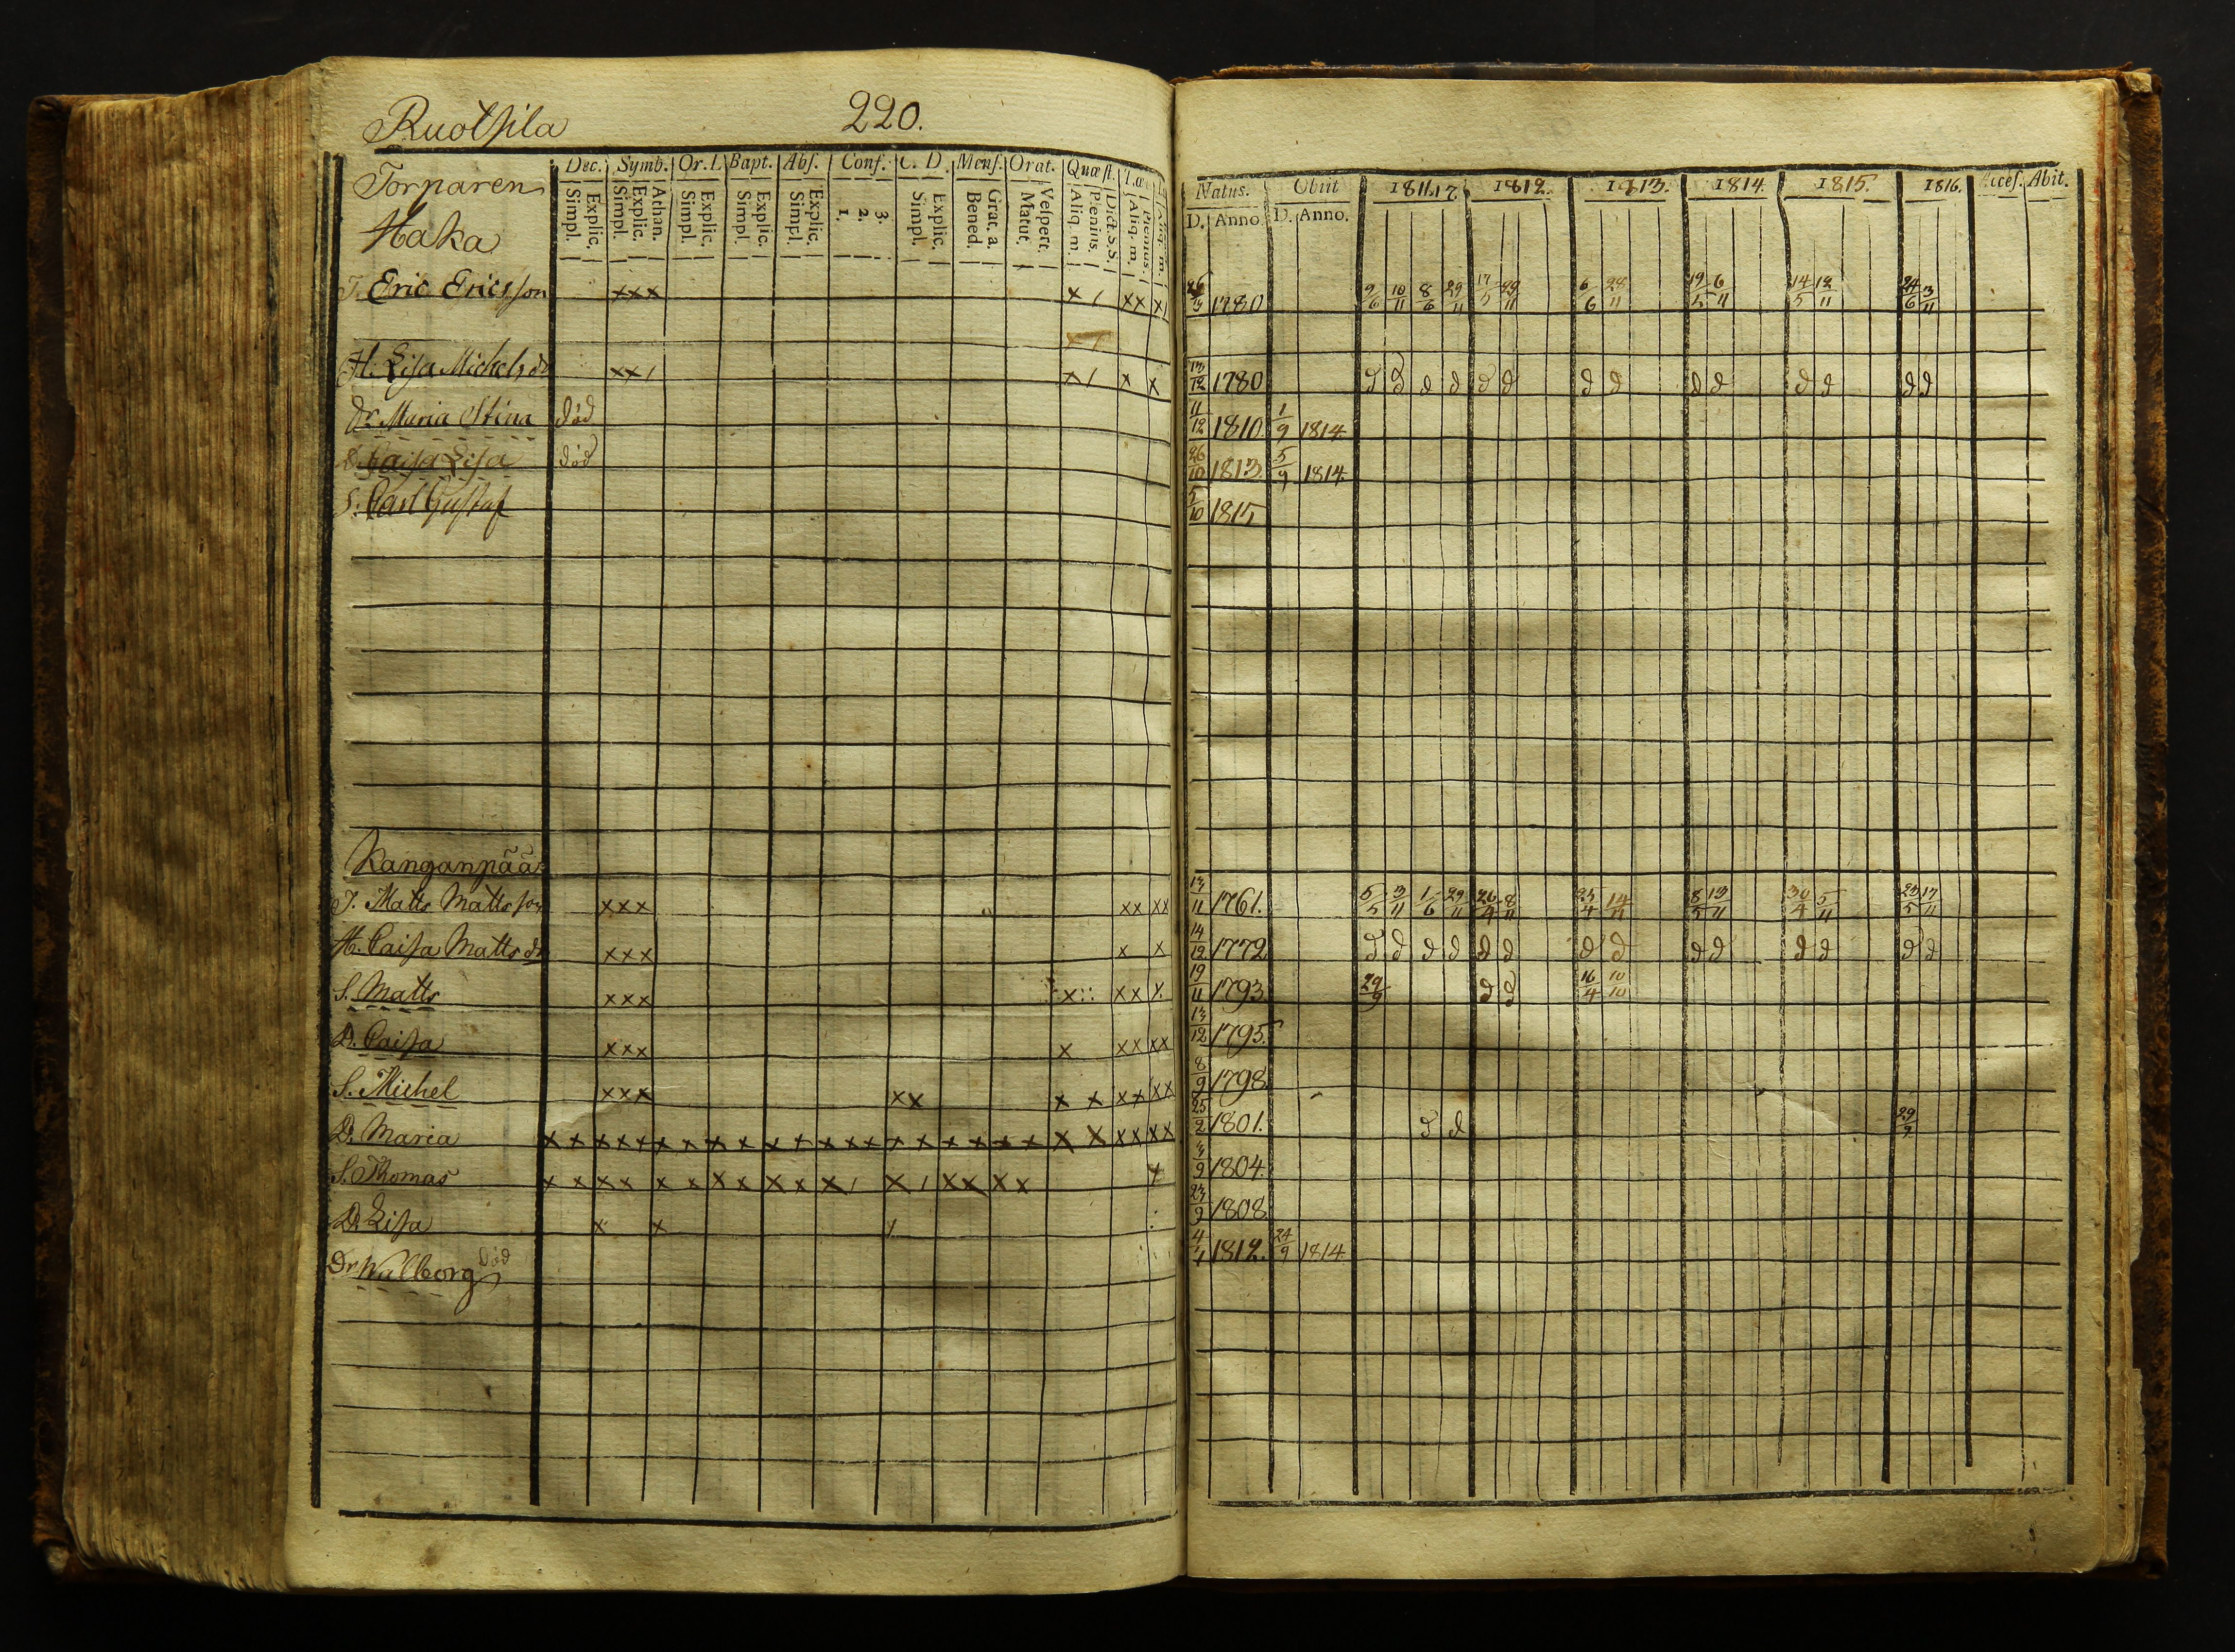 Ruotsila 220.
Torparen
Haka
Dec. Symb. Or. I. Bapt. Abs. Conf. C. D. Mens. Orat. Quæst.
Explic. Simpl. Athan. Explic. Simpl. Explic. Simpl. Explic. Simpl. Explic. Simpl. 3. 2. 1. Explic. Simpl. Grat. a. Bened. Vespert. Matut. Dict. S. S. Plenius. Aliq. m. Plenius. Aliq. m. Aliq. m.
Natus. Obiit 1811,12 1812. 1813. 1814. 1815. 1816. Acces. Abit.
D. Anno. D. Anno.
T. Eric Ericsson xxx x / xx x/ 1780 9/6 10/11 8/6 29/11 17/5 29/11 6/6 28/11 19/5 6/11 14/5 12/11 24/6 3/11
H. Lisa Michelsdr xx/ x/ x x 13/12 1780 d d d d d d d d d d d d d d
Dr. Maria Stina död 11/12 1810. 1/9 1814.
D. Caisa Lisa död 26/10 1813. 5/9 1814.
S. Carl Gustaf 5/10 1815
Kanganpää
T. Matts Mattsson xxx xx xx 13/11 1761. 5/5 3/11 1/6 29/11 26/4 8/11 25/4 14/11 8/5 13/11 30/4 5/11 23/5 17/11
H. Caisa Mattsdr xxx x x 14/12 1772 d d d d d d d d d d d d d d
S. Matts xxx x:: xx x 19/11 1793. 29/9 d d 16/4 10/10
D. Caisa xxx x xx xx 13/12 1795.
S. Michel xxx xx x x xx xx 8/9 1798
D. Maria x x x x x x x x x x x x x x x x x x x x x x x x xx xx 25/2 1801. d d 29/9
S. Thomas x x x x x x x x x x x / x / x x x x x 1804.
D. Lisa x x / 23/9 1808
Dr Wallborg Död 4/4 1812. 24/9 1814